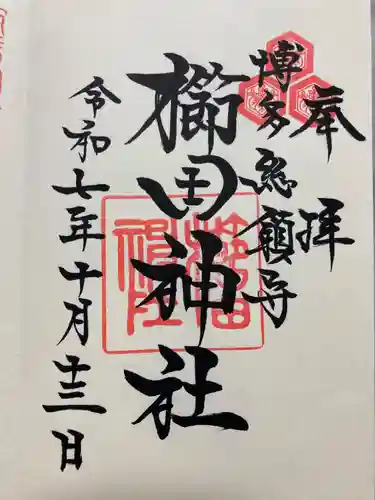 奉拝
博多総鎮守
櫛田神社
令和七年十月十三日